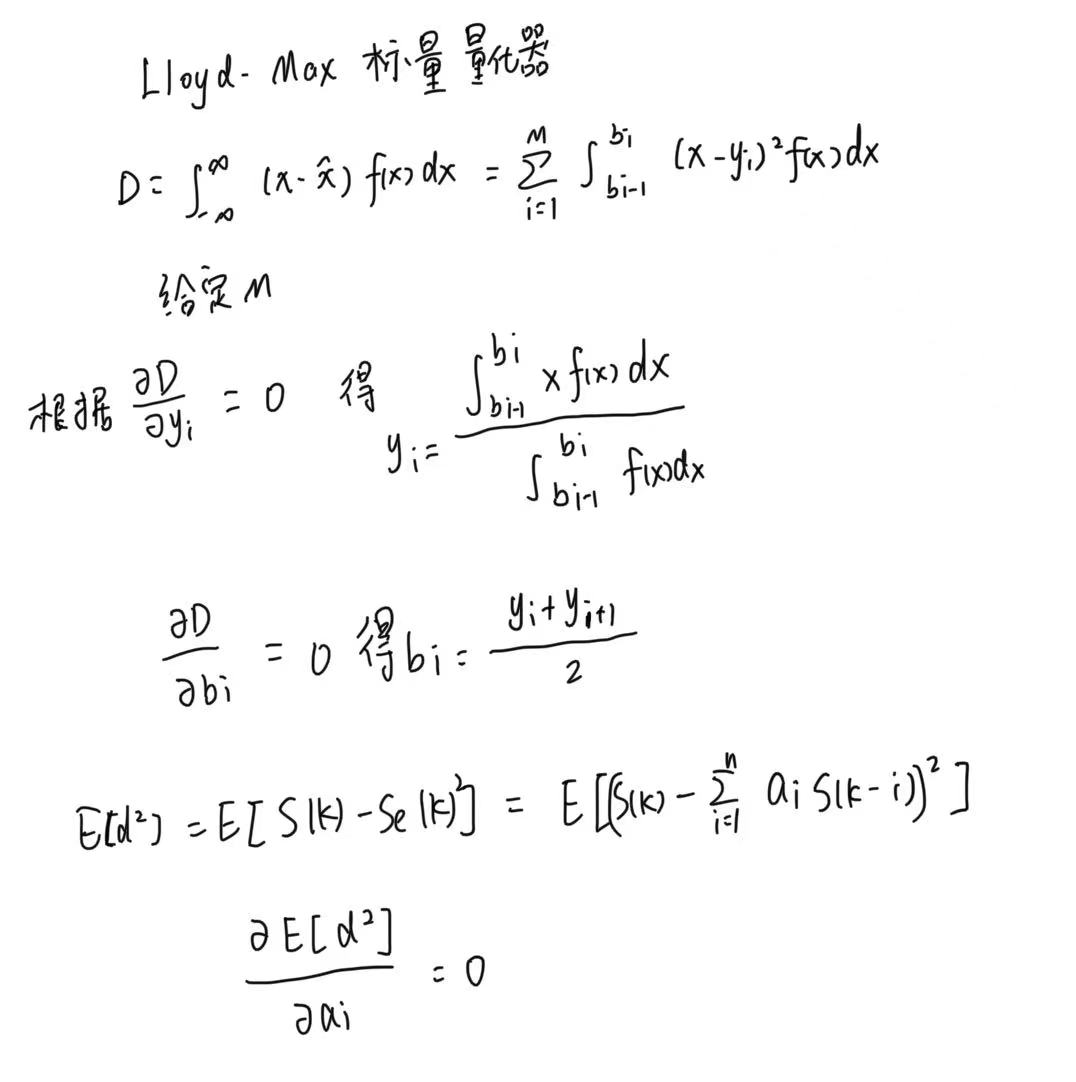 Lloyd-Max 标量量化器
D = ∫_{-∞}^{∞} (x-x̂) f(x) dx = ∑_{i=1}^{M} ∫_{bi-1}^{bi} (x-yi)² f(x) dx
给定M
根据 ∂D/∂yi = 0 得 yi = ∫_{bi-1}^{bi} x f(x) dx / ∫_{bi-1}^{bi} f(x) dx
∂D/∂bi = 0 得 bi = (yi + yi+1)/2
E[d²] = E[S(k) - Se(k)²] = E[(S(k) - ∑_{i=1}^{n} ai S(k-i))²]
∂E[d²]/∂ai = 0